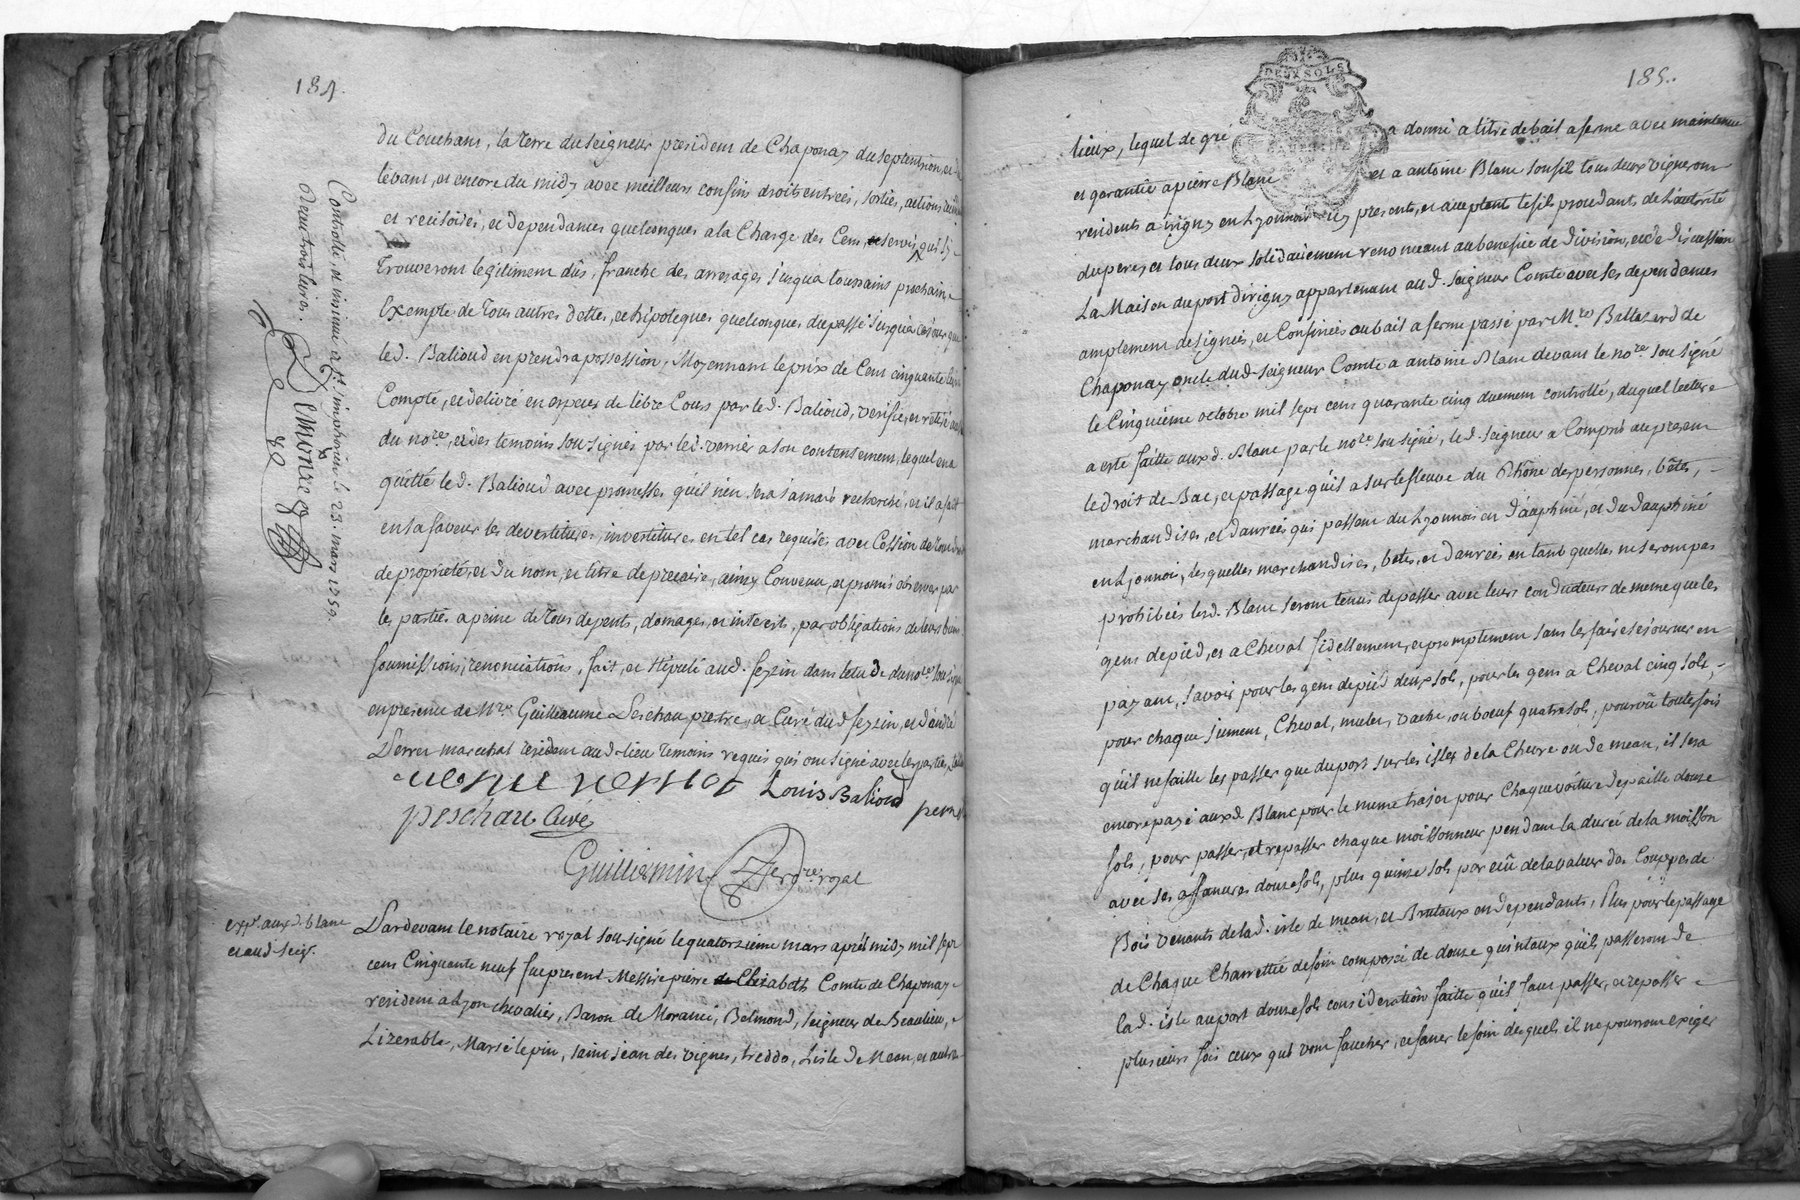 184.
du Couchant, la terre du seigneur president de Chaponay du septentrion, et
levant, et encore du midy avec meilleurs confins droits entrées, sorties, actions
et recisoires, et dependances quelconques a la Charge des Cens, et servis qui s'y
trouveront legitimement dûs, franche des arrerages jusqua toussaints prochaine
Exempte de tous autres dettes, et hipoteques quelconques du passé jusqua ce jour que
led. Balioud en prendra possession, Moyennant le prix de Cent cinquante livres
Compté, et delivré en especes de libre Cours par led. Balioud, verifié, et retiré
du nore, et des temoins soussignés par led. verrier a son contentement, lequel en a
quitté led. Balioud avec promesses qu'il n'en sera jamais recherché, et il a fait
en sa faveur les devestitures, investitures en tel cas requises avec Cession de tous droits
de proprieté, et du nom, et titre de precaire, ainsy Convenu, et promis observer par
les parties a peine de tous depents, domages, et interests, par obligations de leurs biens
soumissions, renonciations, fait, et stipulé aud. feyzin dans letude du nore sousigné
en presence de Mre Guilleaume Peschau pretre, et Curé dud feyzin, et d'andré
Perrer marechal resident aud-lieu temoins requis qui ont signé avec les parties
Louis Balioud
peschau Curé
Guilliermin nore royal
Controllé, et insinué a St simphorien le 23. mars 1759.
Receu trois livres.
exp. aux d. blanc
et aud seigr.
Pardevant le notaire royal soussigné le quatorzieme mars aprés midy mil sept
cens Cinquante neuf fut present Messire pierre Elizabeth Comte de Chaponay
resident a Lyon chevalier, Baron de Morancé, Belmond, seigneur de Beaulieu,
Lizerable, Marsé le pin, saint jean des vignes, treddo, Lisle de Mean, et autres
185.
DEUX SOLS
lieux, lequel de gré a donné a titre de bail a ferme avec maintenue
et garantie a pierre Blanc et a antoine Blanc son fils tous deux vignerons
residents a irigny en Lyonnois icy presents, et acceptants le fils procedant de L'autorité
du pere, et tous deux solidairement renonceant au benefice de division, et de discussion
La Maison du port dirigny appartenant aud. seigneur Comte avec ses dependances
amplement designée, et Confinées au bail a ferme passé par Mre Baltezard de
Chaponay oncle dud-seigneur Comte a antoine Blanc devant le nore soussigné
le Cinquieme octobre mil sept cens quarante cinq duement controllé, duquel lecture
a esté faitte aux d. Blanc par le nore soussigné, led. seigneur a Compris au present
le droit de Bac, et passage qu'il a sur le fleuve du Rhône des personnes, bêtes,
marchandises, et danrées qui passent du Lyonnois en dauphiné, et du dauphiné
en Lyonnois, lesquelles marchandises, betes, et danrées en tant quelles ne seront pas
prohibées lesd. Blanc seront tenus de passer avec leurs conducteurs de meme que les
gens de pied, et a Cheval fidellement, et promptement sans les faire sejourner en
payant, savoir pour les gens de pied deux sols, pour les gens a Cheval cinq sols,
pour chaque jument, Cheval, mulet, vache, ou boeuf quatre sols, pourvû toutefois
qu'il ne faille les passer que du port sur les isles de la Chevre ou de mean, il sera
encore payé aux d. Blanc pour le meme trajet pour Chaque voiture de paille douze
sols, pour passer, et repasser chaque moissonneur pendant la durée de la moisson
avec ses affanures douze sols, plus quinze sols par ecû de la valeur des Couppes de
Bois venants de lad. isle de mean, et Brotaux en dependants, Plus pour le passage
de Chaque Charrettée de foin composée de douze quintaux qu'ils passeront de
lad. isle au port douze sols consideration faitte qu'il faut passer, et repasser
plusieurs fois ceux qui vont faucher, et faner le foin desquels il ne pourront exiger